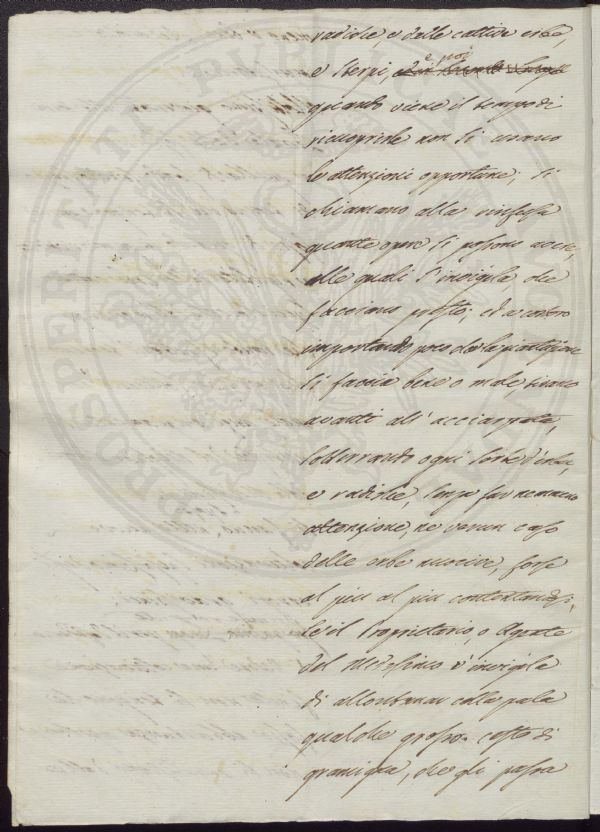 radiche, e delle cattive erbe,
e sterpi, e poi
quando viene il tempo di
ricoprirle non si usano
le attenzioni opportune; si
chiamano alla rinfusa
quante opre si possono avere,
alle quali s'invigila che
facciano presto; ed a costoro
importando poco che la piantagione
si faccia bene o male, tirano
avanti all'acciarpata,
sotterrando ogni sorte d'erbe,
e radiche, senza far nemmeno
attenzione, ne verun caso
delle erbe nocive, forse
al più al più contentandosi,
se il Proprietario, o Agente
del medesimo v'invigila
di allontanar colla pala
qualche grosso cesto di
gramigna, che gli passa
PROSPERITATI PUBLICAE